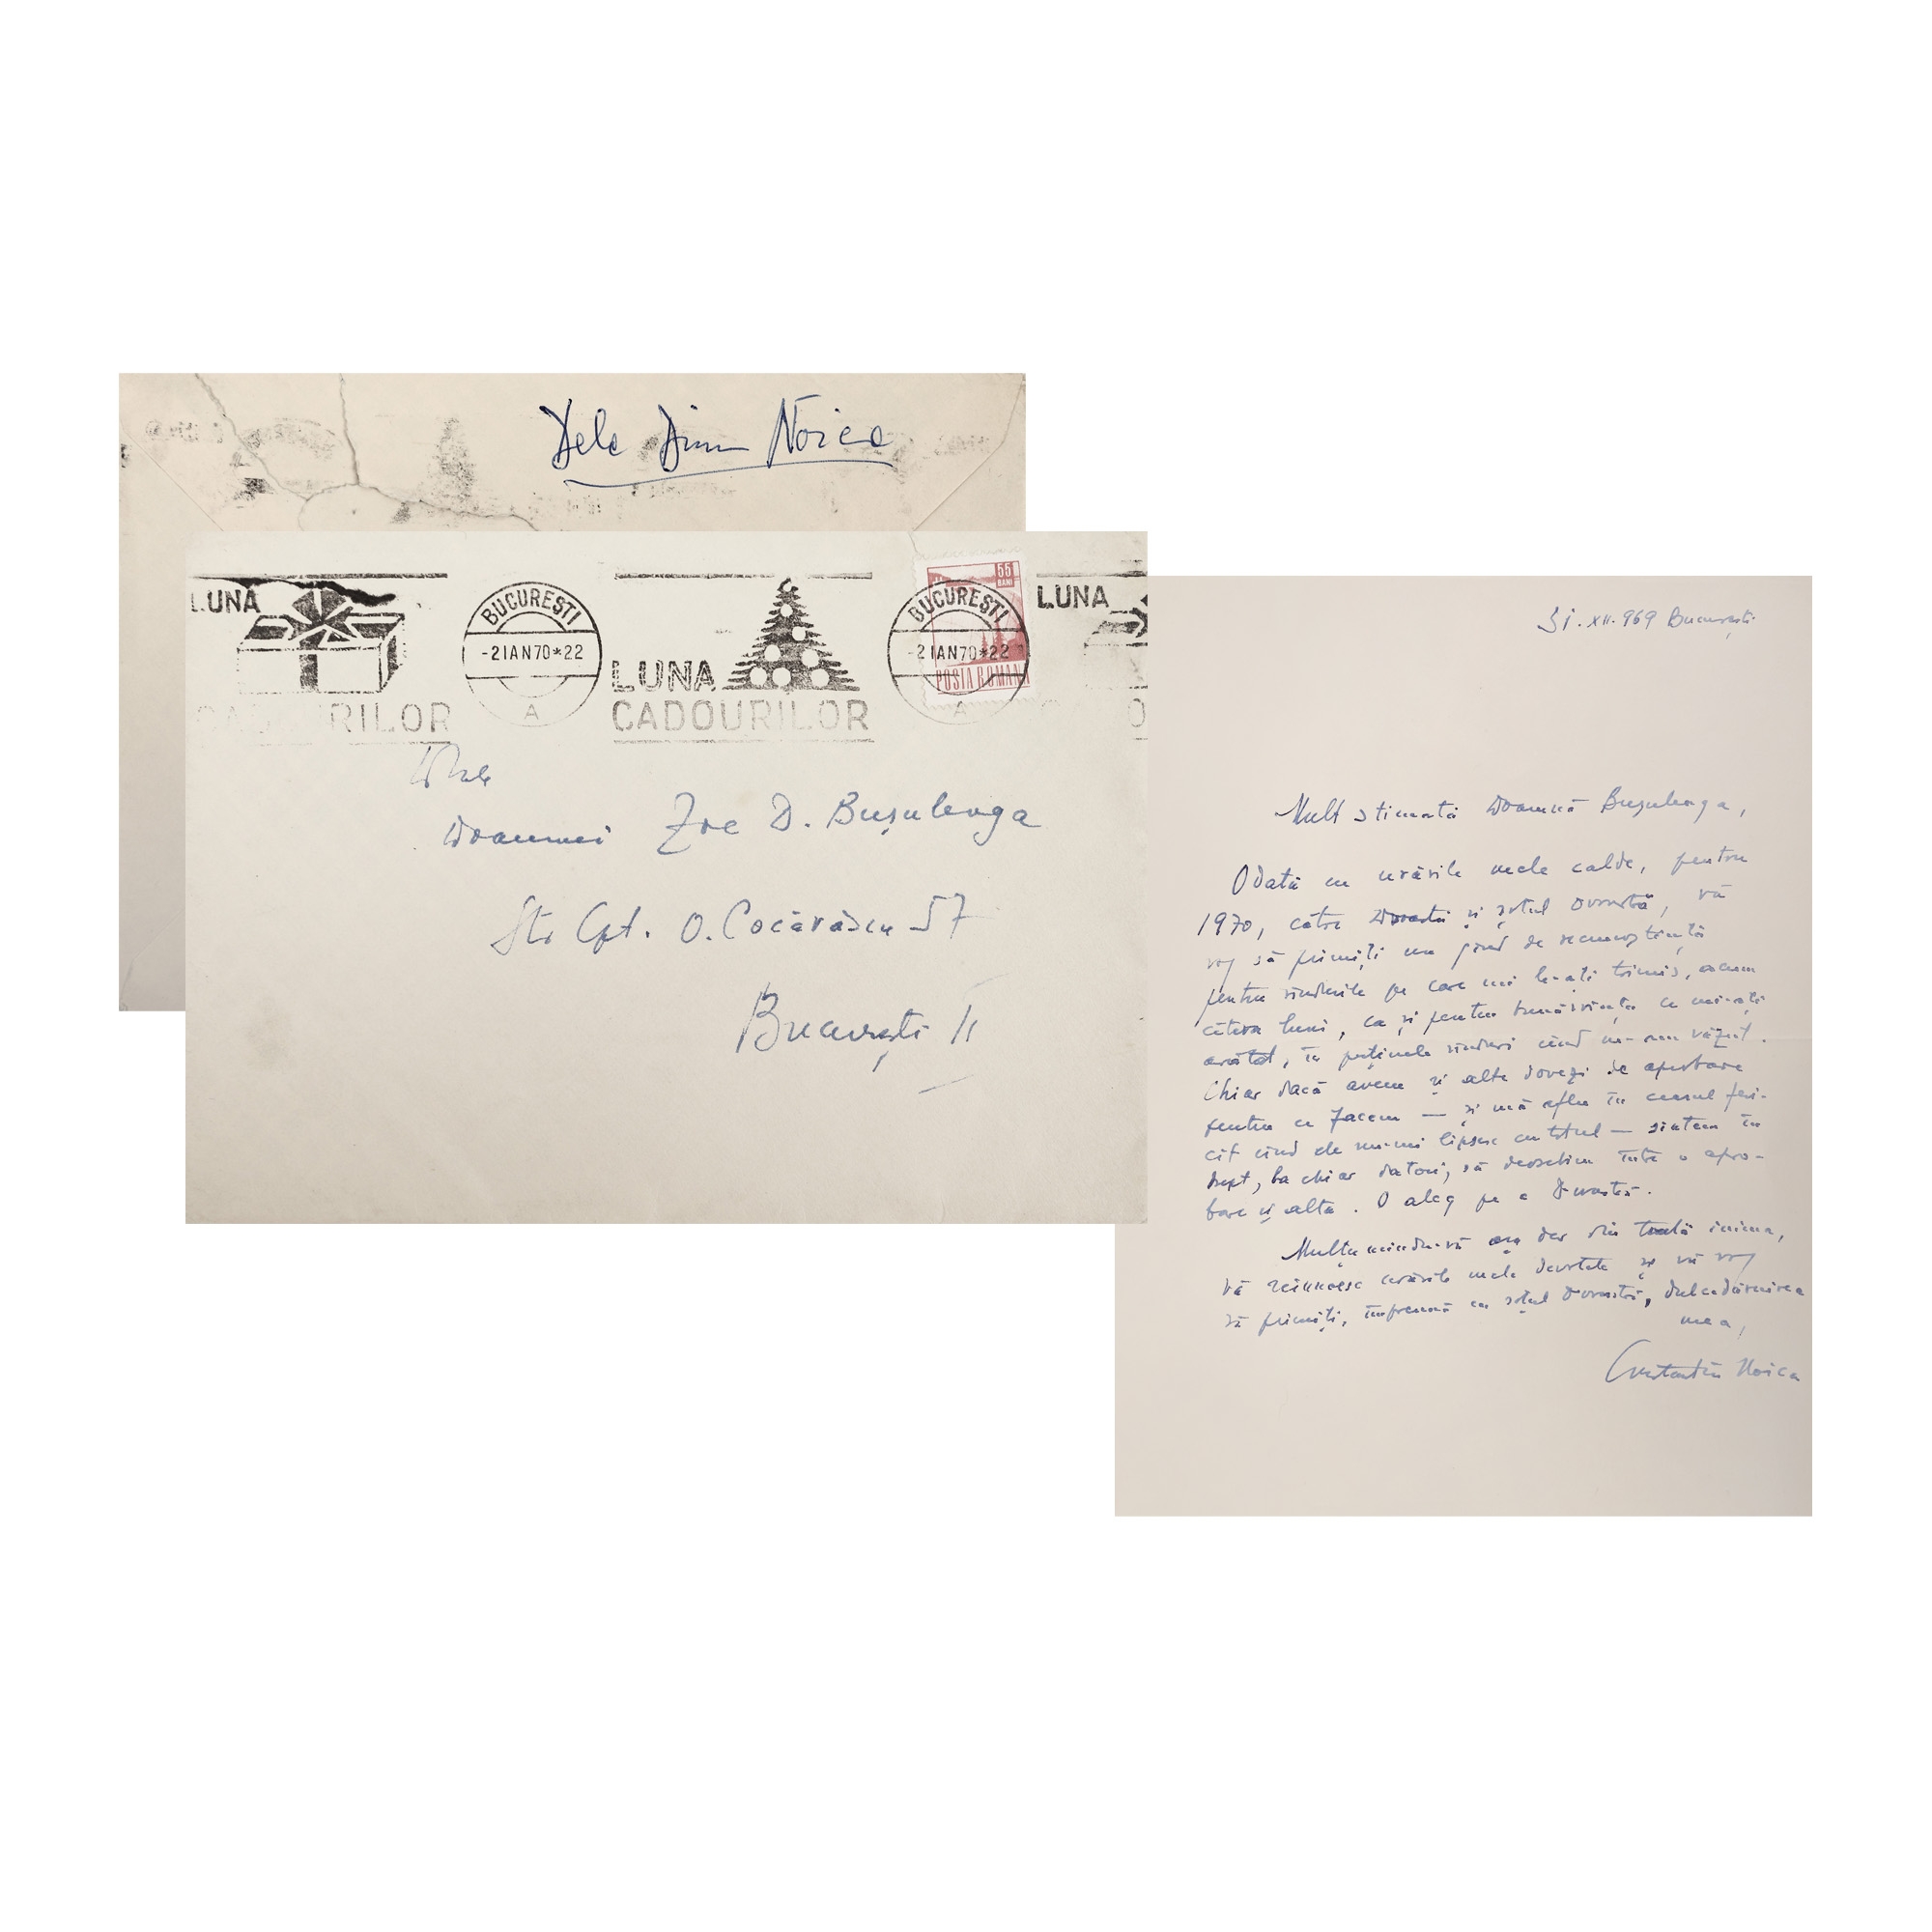 Dela Dinu Noica
LUNA
CADOURILOR
BUCUREȘTI
-2IAN70*22
A
LUNA
CADOURILOR
55
BANI
POSTA ROMANA
BUCUREȘTI
-2IAN70*22
A
LUNA
Doamnei Zoe D. Bușulenga
Str Cpt. O. Cocărăscu 57
București II
31.XII.969 București
Mult stimată Doamnă Bușulenga,
Odată cu urările mele calde, pentru
1970, către Dvoastră și soțul Dvoastră, vă
rog să primiți un gînd de recunoștință
pentru rîndurile pe care mi le-ați trimis, acum
cîteva luni, ca și pentru bunăvoința ce mi-ați
arătat, în puținele rînduri cînd ne-am văzut.
Chiar dacă avem și alte dovezi de aprobare
pentru ce facem — și mă aflu în cazul feri-
cit cînd ele nu-mi lipsesc cu totul — sîntem în
drept, ba chiar datori, să deosebim între o apro-
bare și alta. O aleg pe a Dvoastră.
Mulțumindu-vă dar din toată inima,
vă reînnoesc urările mele devotate și vă rog
să primiți, împreună cu soțul Dvoastră,
mea,
Constantin Noica